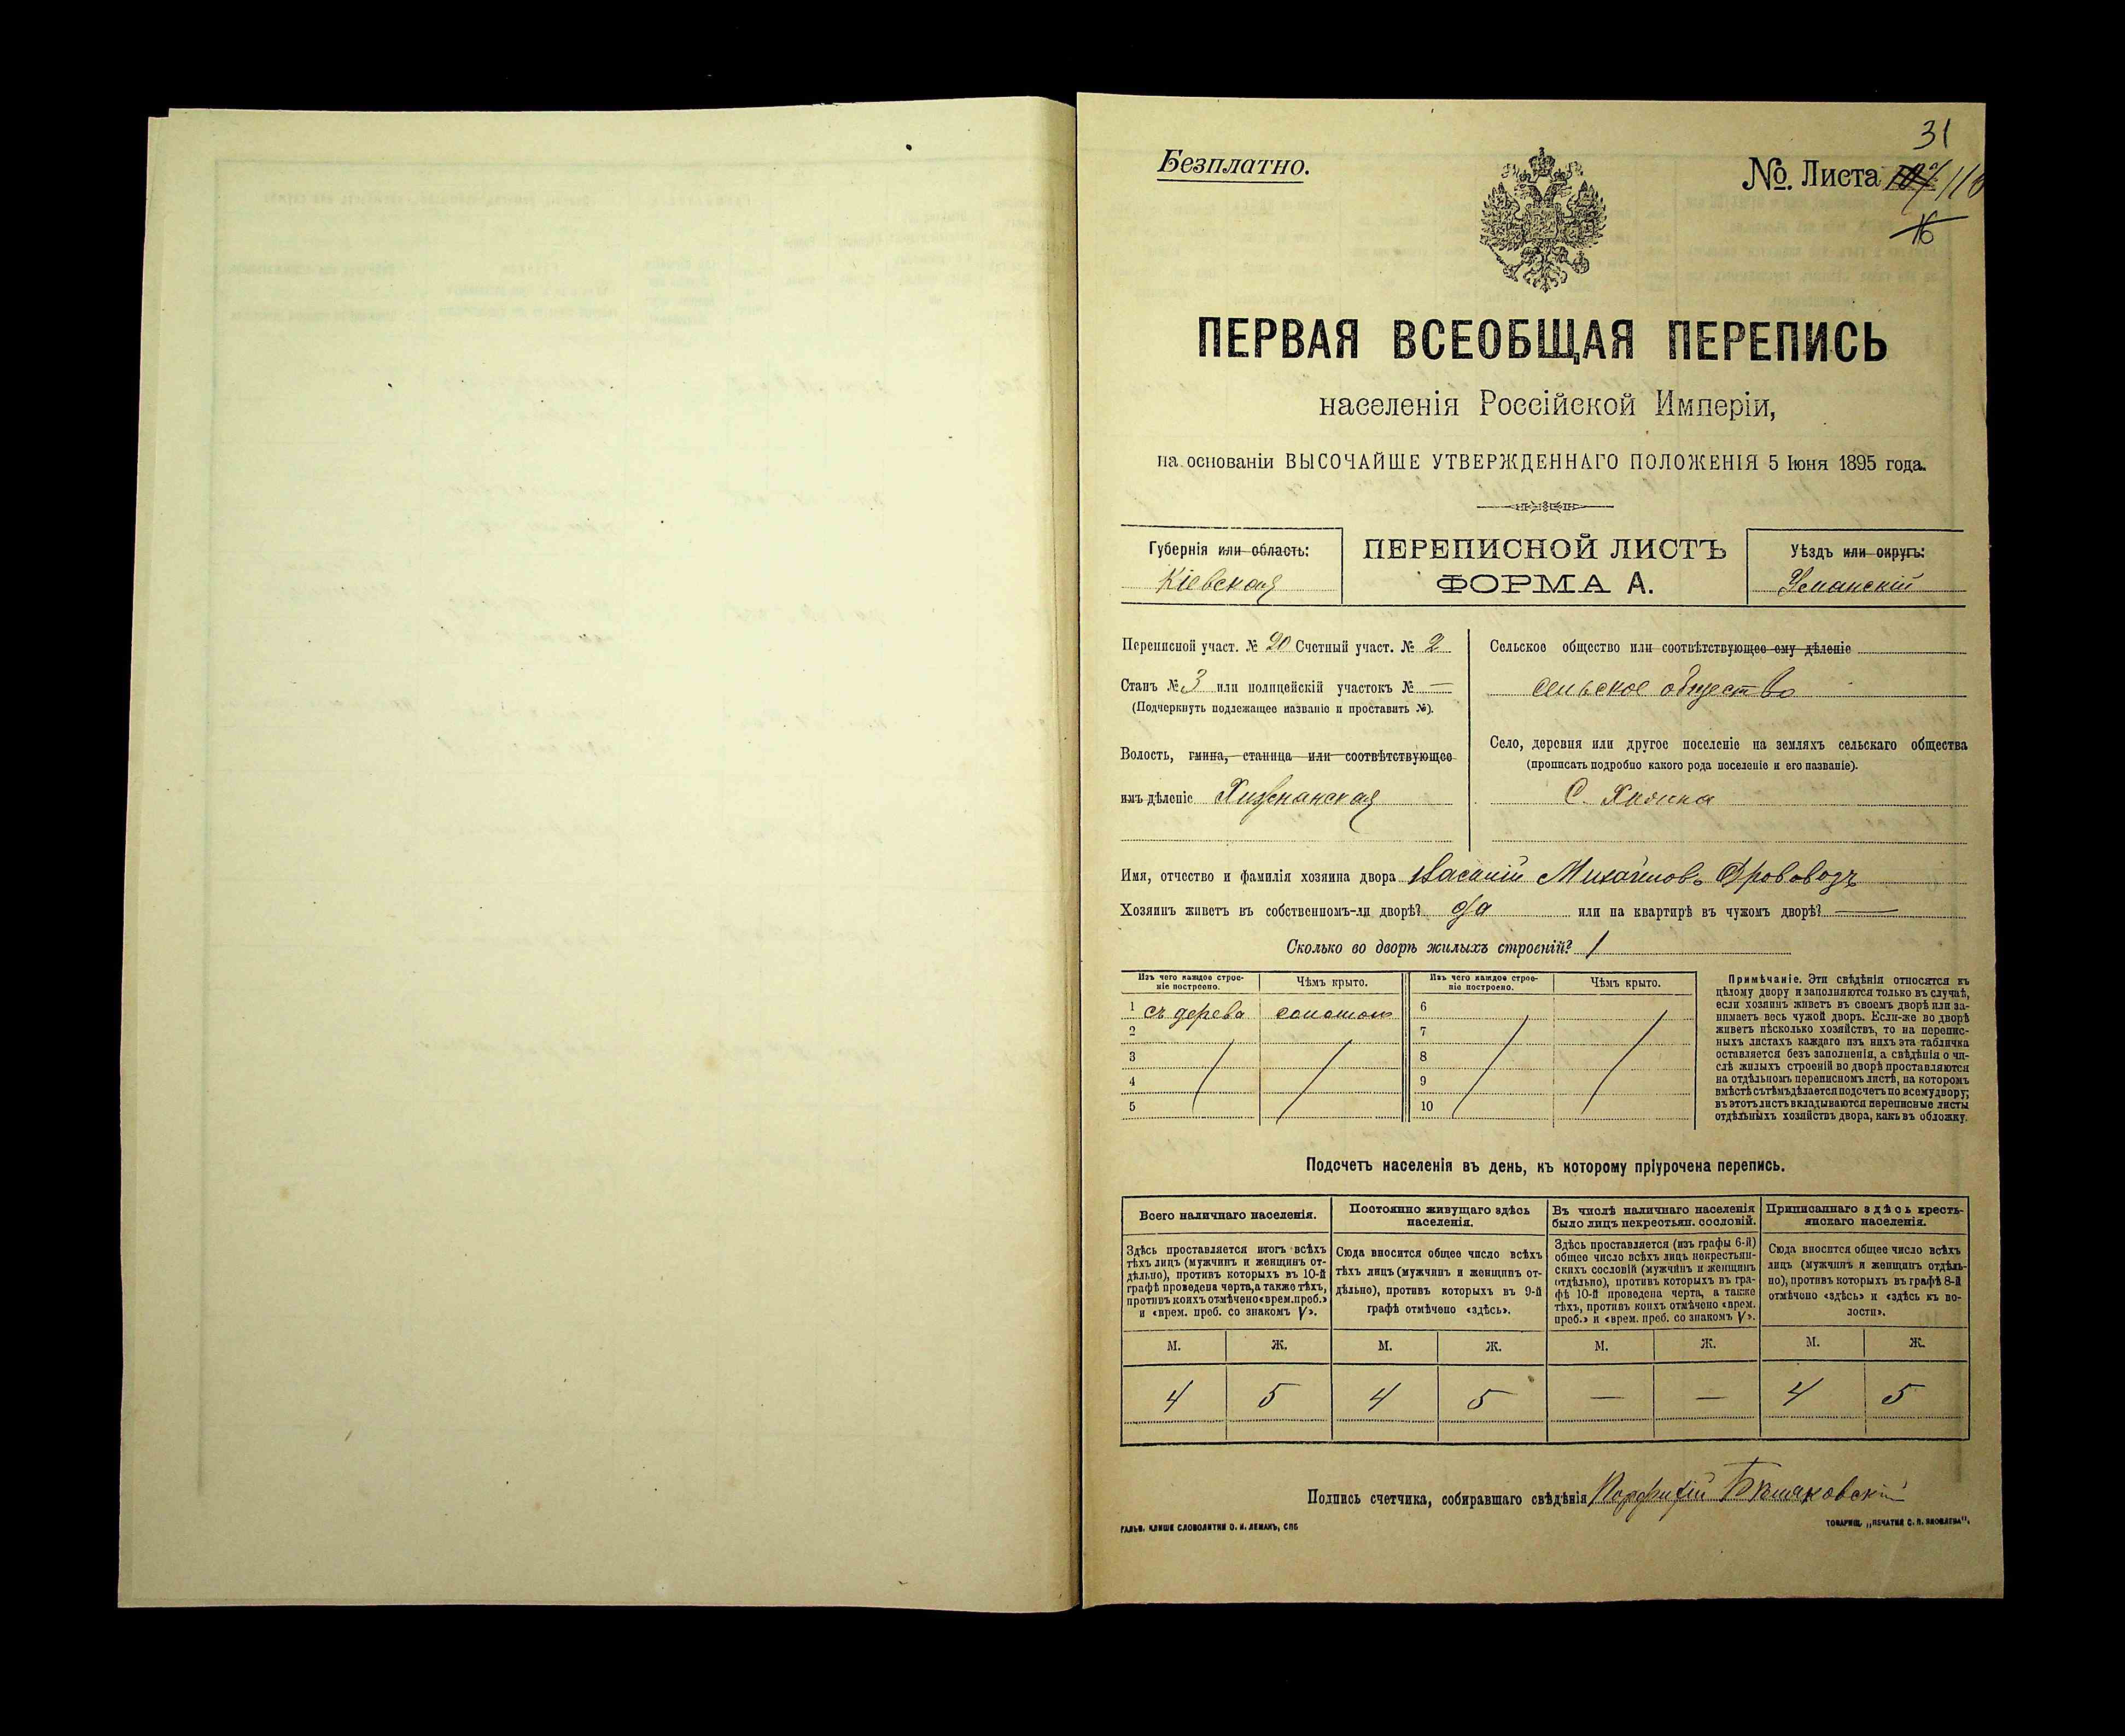 31
Безплатно.
№. Листа 110
16
ПЕРВАЯ ВСЕОБЩАЯ ПЕРЕПИСЬ
населенія Россійской Имперіи,
на основаніи ВЫСОЧАЙШЕ УТВЕРЖДЕННАГО ПОЛОЖЕНІЯ 5 Іюня 1895 года.
Губернія или область:
Кіевская
ПЕРЕПИСНОЙ ЛИСТЪ
ФОРМА А.
Уѣздъ или округъ:
Уманскій
Переписной участ. № 20 Счетный участ. № 2
Станъ № 3 или полицейскій участокъ № —
(Подчеркнуть подлежащее названіе и проставить №).
Волость, гмина, станица или соотвѣтствующее
имъ дѣленіе Хижнянская
Сельское общество или соотвѣтствующее ему дѣленіе
сельское общество
Село, деревня или другое поселеніе на земляхъ сельскаго общества
(прописать подробно какого рода поселеніе и его названіе).
С. Хижна
Имя, отчество и фамилія хозяина двора Василій Михайловъ Дрововозъ
Хозяинъ живетъ въ собственномъ-ли дворѣ? да или на квартирѣ въ чужомъ дворѣ? —
Сколько во дворѣ жилыхъ строеній? 1
Изъ чего каждое строе-
ніе построено.
Чѣмъ крыто.
Изъ чего каждое строе-
ніе построено.
Чѣмъ крыто.
1 съ дерева соломою 6
2 7
3 8
4 9
5 10
Примѣчаніе. Эти свѣдѣнія относятся къ
цѣлому двору и заполняются только въ случаѣ,
если хозяинъ живетъ въ своемъ дворѣ или за-
нимаетъ весь чужой дворъ. Если-же во дворѣ
живетъ нѣсколько хозяйствъ, то на перепис-
ныхъ листахъ каждаго изъ нихъ эта табличка
оставляется безъ заполненія, а свѣдѣнія о чи-
слѣ жилыхъ строеній во дворѣ проставляются
на отдѣльномъ переписномъ листѣ, на которомъ
вмѣстѣ съ тѣмъ дѣлается подсчетъ по всему двору;
въ этотъ листъ вкладываются переписные листы
отдѣльныхъ хозяйствъ двора, какъ въ обложку.
Подсчетъ населенія въ день, къ которому пріурочена перепись.
Всего наличнаго населенія.
Постоянно живущаго здѣсь
населенія.
Въ числѣ наличнаго населенія
было лицъ некрестьян. сословій.
Приписаннаго здѣсь кресть-
янскаго населенія.
Здѣсь проставляется итогъ всѣхъ
тѣхъ лицъ (мужчинъ и женщинъ от-
дѣльно), противъ которыхъ въ 10-й
графѣ проведена черта, а также тѣхъ,
противъ коихъ отмѣчено «врем. проб.»
и «врем. преб. со знакомъ V».
Сюда вносится общее число всѣхъ
тѣхъ лицъ (мужчинъ и женщинъ от-
дѣльно), противъ которыхъ въ 9-й
графѣ отмѣчено «здѣсь».
Здѣсь проставляется (изъ графы 6-й)
общее число всѣхъ лицъ некрестьян-
скихъ сословій (мужчинъ и женщинъ
отдѣльно), противъ которыхъ въ гра-
фѣ 10-й проведена черта, а также
тѣхъ, противъ коихъ отмѣчено «врем.
проб.» и «врем. преб. со знакомъ V».
Сюда вносится общее число всѣхъ
лицъ (мужчинъ и женщинъ отдѣль-
но), противъ которыхъ въ графѣ 8-й
отмѣчено «здѣсь» и «здѣсь къ во-
лости».
М. Ж. М. Ж. М. Ж. М. Ж.
4 5 4 5 — — 4 5
Подпись счетчика, собиравшаго свѣдѣнія Порфирій
ГАЛЬВ. КЛИШЕ СЛОВОЛИТНИ О. И. ЛЕМАНЪ, СПБ
ТОВАРИЩ. „ПЕЧАТНЯ С. П. ЯКОВЛЕВА".